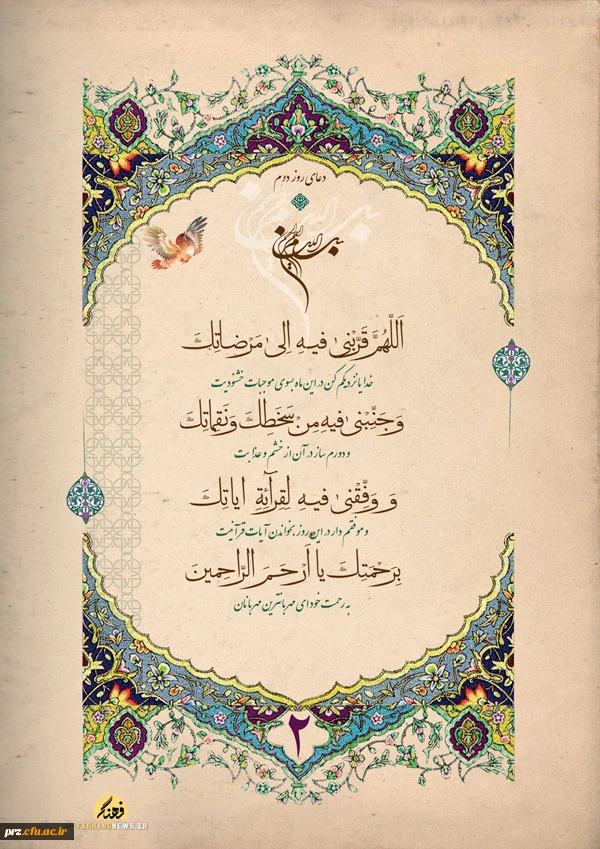 دعای روز دوم
بسم الله الرحمن الرحیم
اَللّهُمَّ قَرِّبْنی فیهِ اِلی مَرْضاتِكَ
خدایا نزدیکم کن در این ماه بسوی موجبات خشنودیت
وَجَنِّبْنی فیهِ مِنْ سَخَطِكَ وَنَقِماتِكَ
و دورم ساز در آن از خشم و عذابت
وَ وَفِّقْنی فیهِ لِقِرآئَةِ ایاتِكَ
و موفقم دار در این روز بخواندن آیات قرآنیت
بِرَحْمَتِكَ یا اَرْحَمَ الرّاحِمینَ
به رحمت خود ای مهربانترین مهربانان
۲
فرهنگ
FARHANGNEWS.IR
prz.cfu.ac.ir